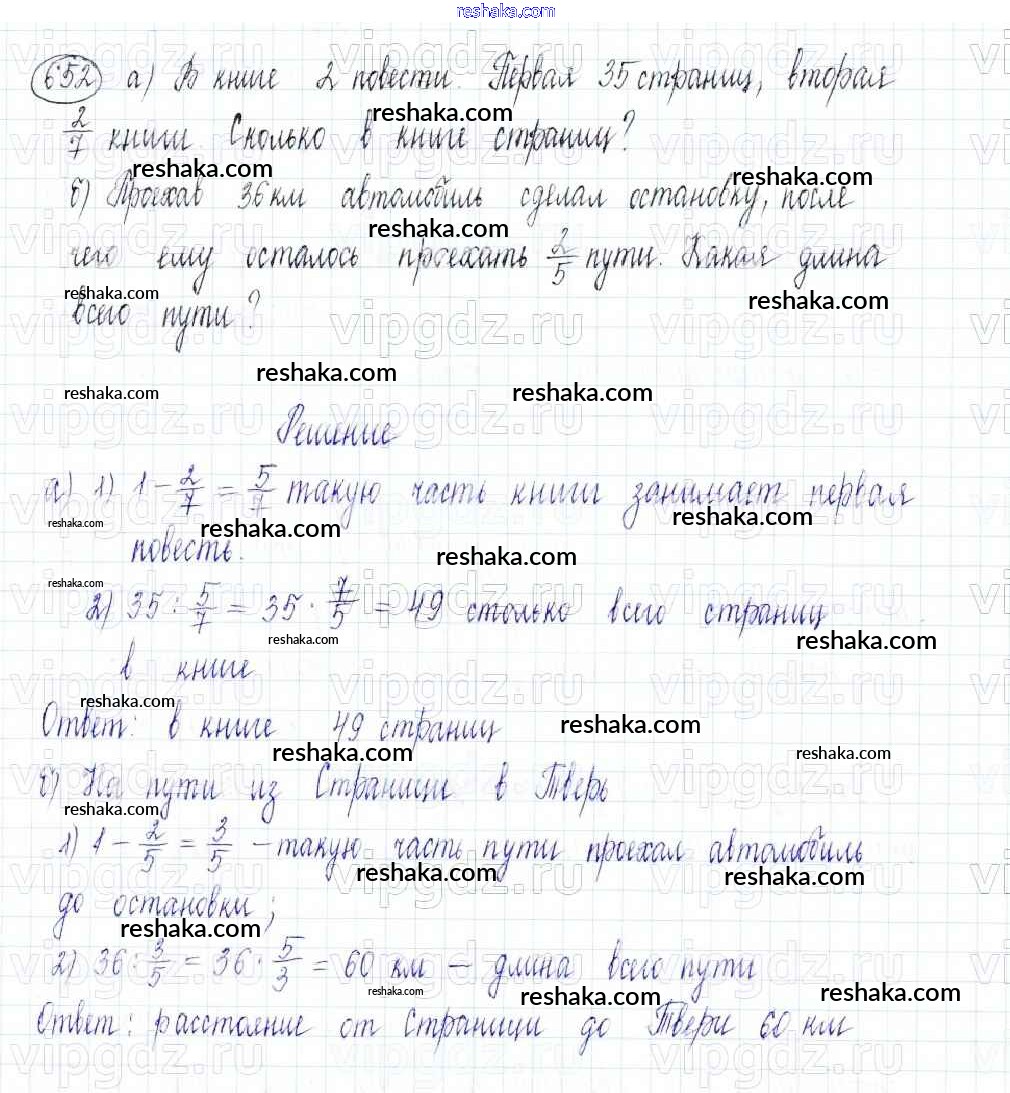 reshaka.com
652 а) В книге 2 повести. Первая 35 страниц, вторая
2/7 книги. Сколько в книге страниц?
б) Проехав 36 км автомобиль сделал остановку, после
чего ему осталось проехать 2/5 пути. Какая длина
всего пути?
Решение
а) 1) 1 - 2/7 = 5/7 такую часть книги занимает первая
повесть.
2) 35 : 5/7 = 35 · 7/5 = 49 столько всего страниц
в книге
Ответ: в книге 49 страниц
б) На пути из Страницы в Тверь
1) 1 - 2/5 = 3/5 - такую часть пути проехал автомобиль
до остановки;
2) 36 : 3/5 = 36 · 5/3 = 60 км - длина всего пути
Ответ: расстояние от Страници до Твери 60 км